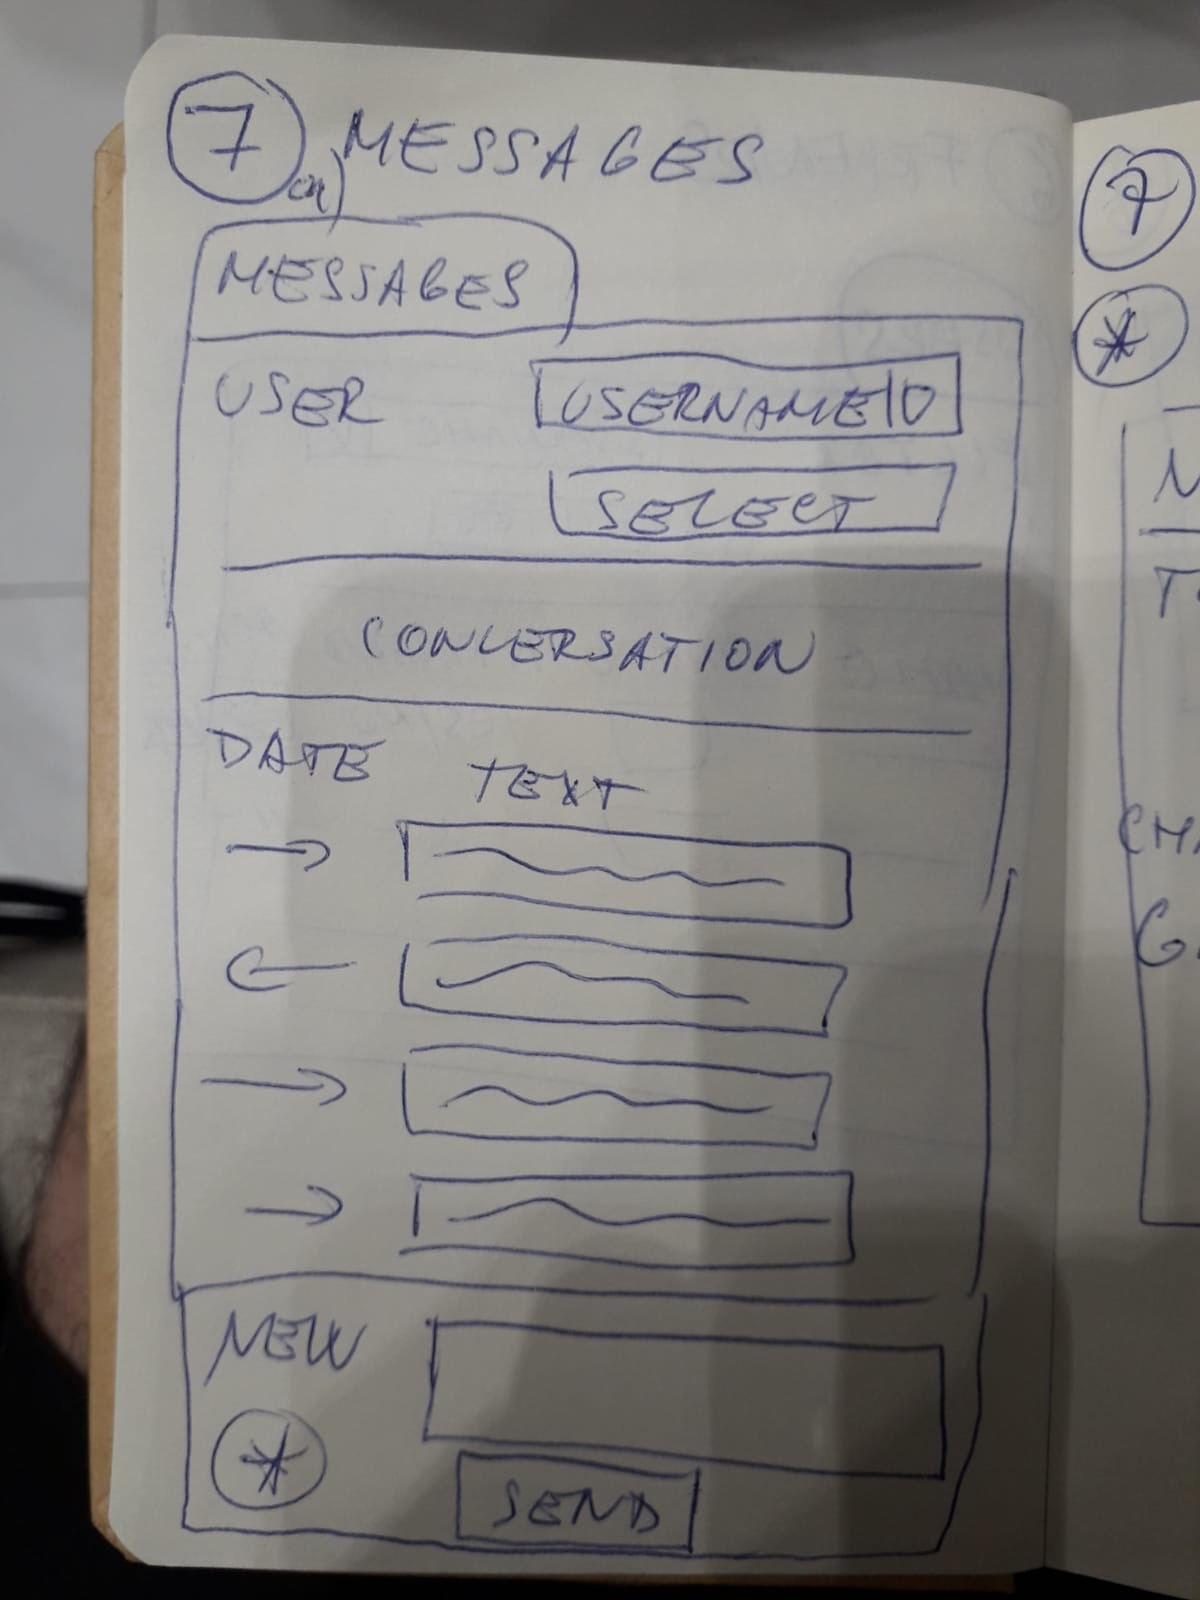 7 a) MESSAGES
MESSAGES
USER USERNAME/ID
SELECT
CONVERSATION
DATE TEXT
→
←
→
→
NEW
*
SEND
7
*
N
T
CHA
G